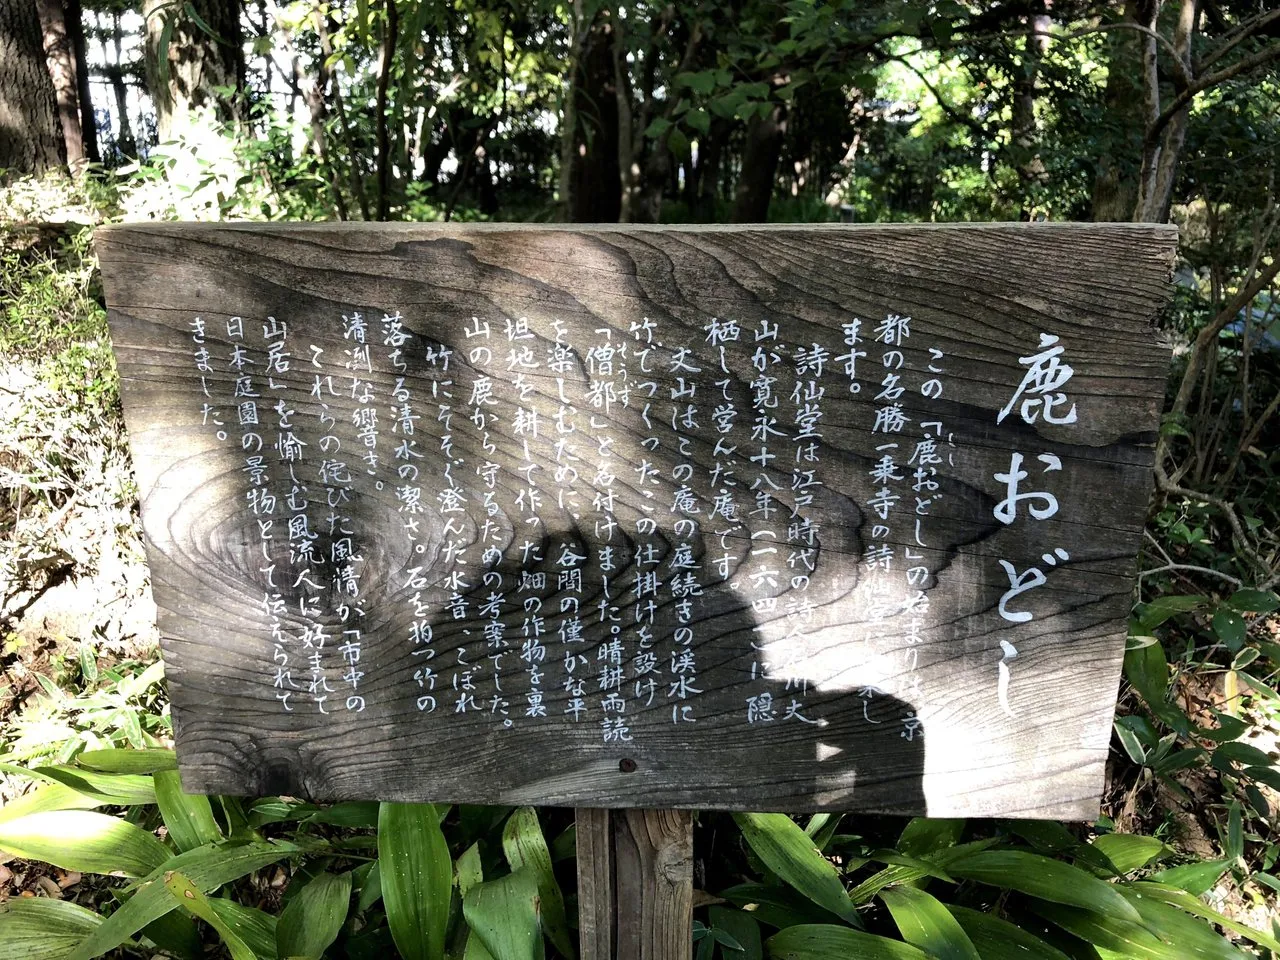 鹿おどし
この「鹿おどし」の始まりは、京
しし
都の名勝一乗寺の詩仙堂に来し
ます。
詩仙堂は江戸時代の詩人川丈
山が寛永十八年(一六四一)に隠
栖して営んだ庵です。
丈山はこの庵の庭続きの渓水に
竹でつくったこの仕掛けを設け
そうず
「僧都」と名付けました。晴耕雨読
を楽しむために、谷間の僅かな平
坦地を耕して作った畑の作物を裏
山の鹿から守るための考案でした。
竹にそそぐ澄んだ水音、こぼれ
落ちる清水の潔さ。石を拍つ竹の
清冽な響き。
これらの侘びた風情が「市中の
山居」を愉しむ風流人に好まれて
日本庭園の景物として伝えられて
きました。